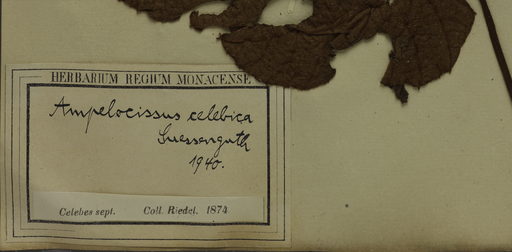 HERBARIUM REGIUM MONACENSE
Ampelocissus celebica
Suessenguth
1940.
Celebes sept. Coll. Riedel. 1874